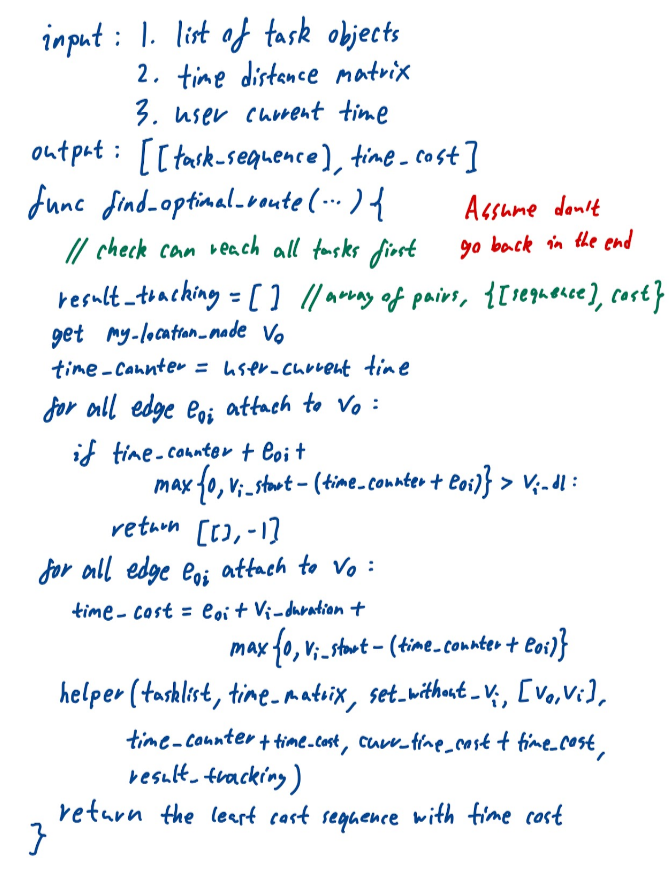 input : 1. list of task objects
2. time distance matrix
3. user current time
output : [[task_sequence], time_cost]
func find_optimal_route(...) {
Assume don't
go back in the end
// check can reach all tasks first
result_tracking = [ ] // array of pairs, {[sequence], cost}
get my_location_node V0
time_counter = user_current time
for all edge e0i attach to V0 :
if time_counter + e0i +
max{0, Vi_start - (time_counter + e0i)} > Vi_dl :
return [[], -1]
for all edge e0i attach to V0 :
time_cost = e0i + Vi_duration +
max{0, Vi_start - (time_counter + e0i)}
helper(tasklist, time_matrix, set_without_Vi, [V0, Vi],
time_counter + time_cost, curr_time_cost + time_cost,
result_tracking)
return the least cost sequence with time cost
}